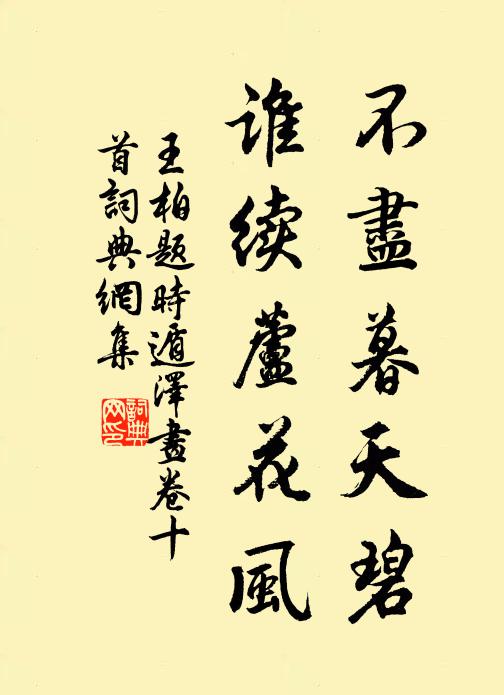 不盡暮天碧
誰续蘆花風
王柏題時遁澤畫卷十
首詞典網集
詞典网印